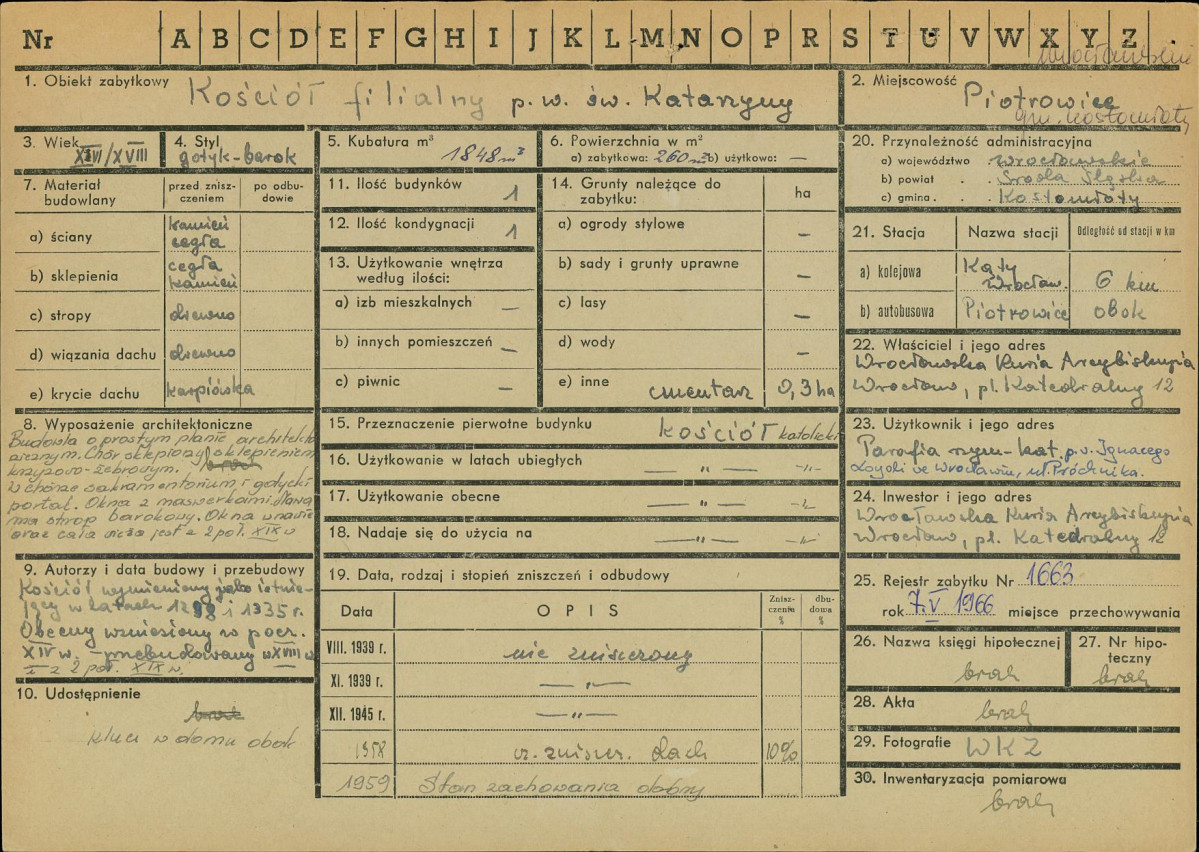 Nr A B C D E F G H I J K L M N O P R S T U V W X Y Z
wrocławskie
1. Obiekt zabytkowy Kościół filialny p.w. św. Katarzyny
2. Miejscowość Piotrowice
gm. Kostomłoty
3. Wiek XIV/XVIII
4. Styl gotyk-barok
5. Kubatura m³ 1848 m³
6. Powierzchnia w m²
a) zabytkowa: 260 m² b) użytkowa: —
7. Materiał budowlany
przed zniszczeniem
po odbudowie
a) ściany kamień cegła
b) sklepienia cegła kamień
c) stropy drewno
d) wiązania dachu drewno
e) krycie dachu karpiówka
8. Wyposażenie architektoniczne
Budowla o prostym planie architekto
nicznym. Chór sklepiony sklepieniem
krzyżowo-żebrowym. brak
W chórze sakramentorium i gotycki
portal. Okna z maswerkami. Nawa
ma strop barokowy. Okna w nawie
oraz cała wieża jest z 2 poł. XIX w
9. Autorzy i data budowy i przebudowy
Kościół wymieniony jako istnie-
jący w latach 1298 i 1335 r.
Obecny wzniesiony w pocz.
XIV w. - przebudowany w XVIII w
i z 2 poł. XIX w.
10. Udostępnienie
brak
klucz w domu obok
11. Ilość budynków 1
12. Ilość kondygnacji 1
13. Użytkowanie wnętrza
według ilości:
a) izb mieszkalnych —
b) innych pomieszczeń —
c) piwnic —
14. Grunty należące do
zabytku: ha
a) ogrody stylowe —
b) sady i grunty uprawne —
c) lasy —
d) wody —
e) inne cmentarz 0,3 ha
15. Przeznaczenie pierwotne budynku kościół katolicki
16. Użytkowanie w latach ubiegłych —"— -"-
17. Użytkowanie obecne —"— -"-
18. Nadaje się do użycia na —"— -"-
19. Data, rodzaj i stopień zniszczeń i odbudowy
Data OPIS Zniszczenia % dbudowa %
VIII. 1939 r. nie zniszczony
XI. 1939 r. —"—
XII. 1945 r. —"—
1958 cz. zniszcz. dach 10%
1959 Stan zachowania dobry
20. Przynależność administracyjna
a) województwo wrocławskie
b) powiat . . Środa Śląska
c) gmina . . Kostomłoty
21. Stacja Nazwa stacji Odległość od stacji w km
a) kolejowa Kąty Wrocław. 6 km
b) autobusowa Piotrowice obok
22. Właściciel i jego adres
Wrocławska Kuria Arcybiskupia
Wrocław, pl. Katedralny 12
23. Użytkownik i jego adres
Parafia rzym-kat. p.w. Ignacego
Loyoli we Wrocławiu, ul. Próchnika.
24. Inwestor i jego adres
Wrocławska Kuria Arcybiskupia
Wrocław, pl. Katedralny 12
25. Rejestr zabytku Nr 1663
rok 7.V 1966 miejsce przechowywania
26. Nazwa księgi hipotecznej
brak
27. Nr hipoteczny
brak
28. Akta
brak
29. Fotografie WKZ
30. Inwentaryzacja pomiarowa
brak